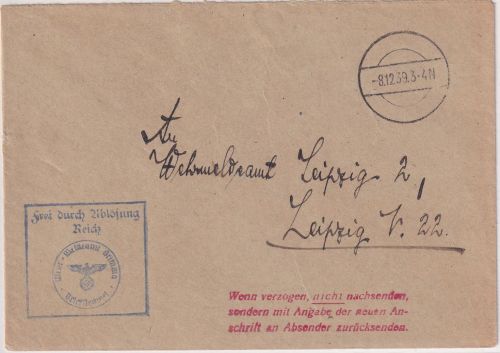 -8.12.39.3-4N
An
Wehrmeldeamt Leipzig 2,
Leipzig N. 22.
Frei durch Ablösung
Reich
Wehr-Meldeamt Grimma
Briefstempel
Wenn verzogen, nicht nachsenden,
sondern mit Angabe der neuen An-
schrift an Absender zurücksenden.